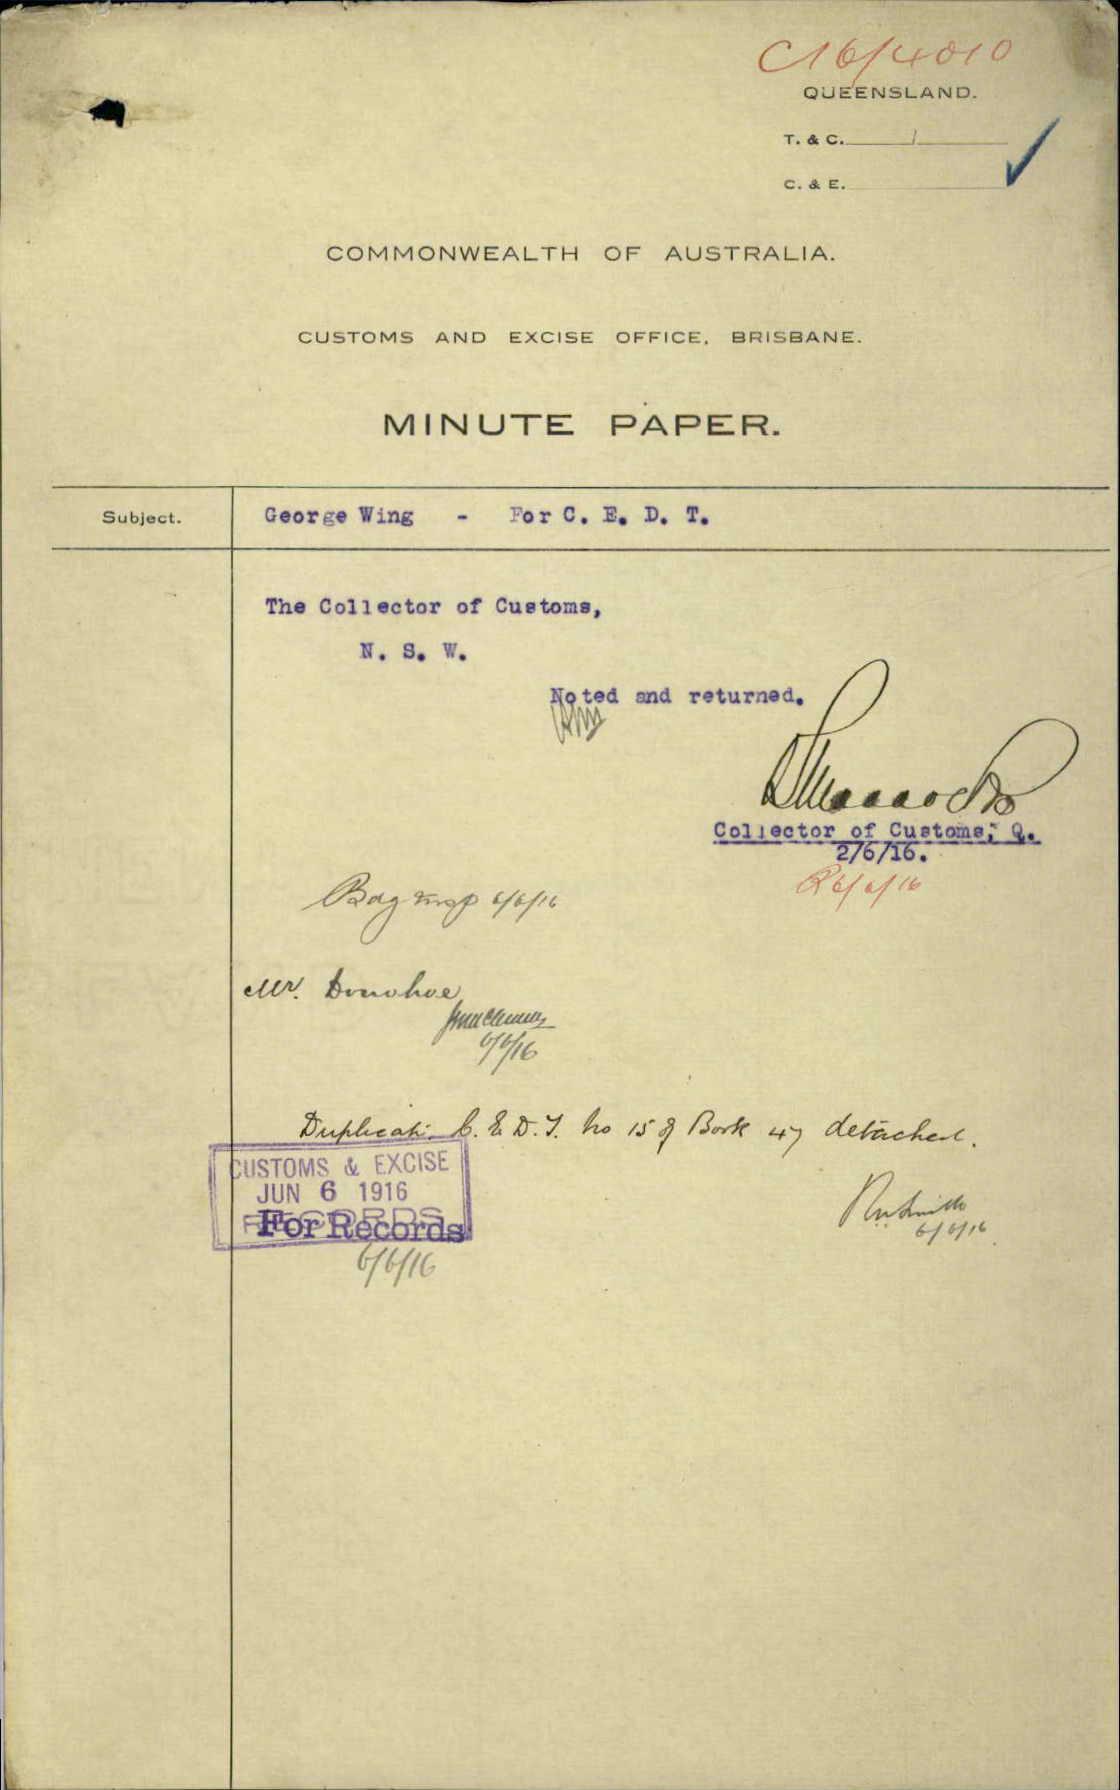 C16/4010
QUEENSLAND.
T. & C. /
C. & E.
COMMONWEALTH OF AUSTRALIA.
CUSTOMS AND EXCISE OFFICE, BRISBANE.
MINUTE PAPER.
Subject.
George Wing - For C. E. D. T.
The Collector of Customs,
N. S. W.
Noted and returned.
Collector of Customs, Q.
2/6/16.
R 6/6/16
Bdg Insp 6/6/16
Mr. Donohoe
6/6/16
Duplicate C. E. D. T. No 15 of Book 47 detached.
CUSTOMS & EXCISE
JUN 6 1916
RECORDS
For Records
6/6/16
6/6/16